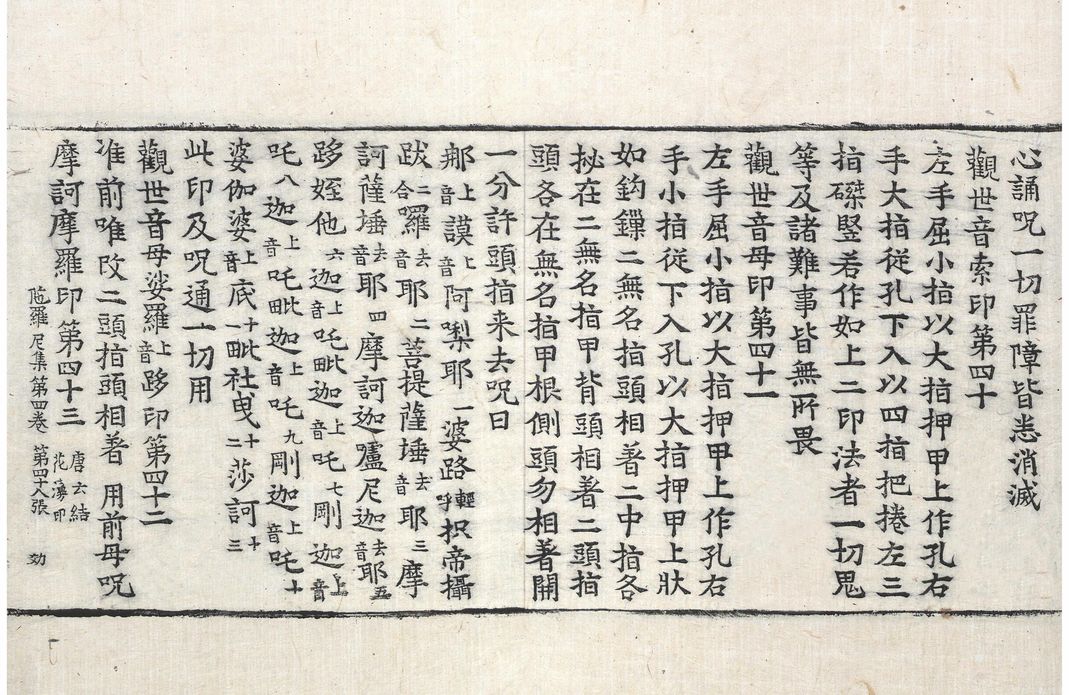 心誦呪一切罪障皆悉消滅
觀世音索印第四十
左手屈小指以大指押甲上作孔右
手大指從孔下入以四指把捲左三
指磔竪若作如上二印法者一切鬼
等及諸難事皆無所畏
觀世音母印第四十一
左手屈小指以大指押甲上作孔右
手小指從下入孔以大指押甲上狀
如鉤鏁二無名指頭相著二中指各
拟在二無名指甲背頭相著二頭指
頭各在無名指甲根側頭勿相著開
一分許頭指来去呪曰
那上音謨上音阿㗚耶一婆路輕呼枳帝攝
跋二合囉去音耶二菩提薩埵去音耶三摩
訶薩埵去音耶四摩訶迦嚧尼迦去音耶五
跢姪他六迦上音吒毗迦上音吒七剛迦上音
吒八迦上音吒毗迦上音吒九剛迦上音吒十
婆伽婆上音底十一毗社曳十二莎訶十三
此印及呪通一切用
觀世音母娑羅上音跢印第四十二
准前唯改二頭指頭相著用前母呪
摩訶摩羅印第四十三唐云結花鬘印
陁羅尼集第四卷 第四十八張 劾